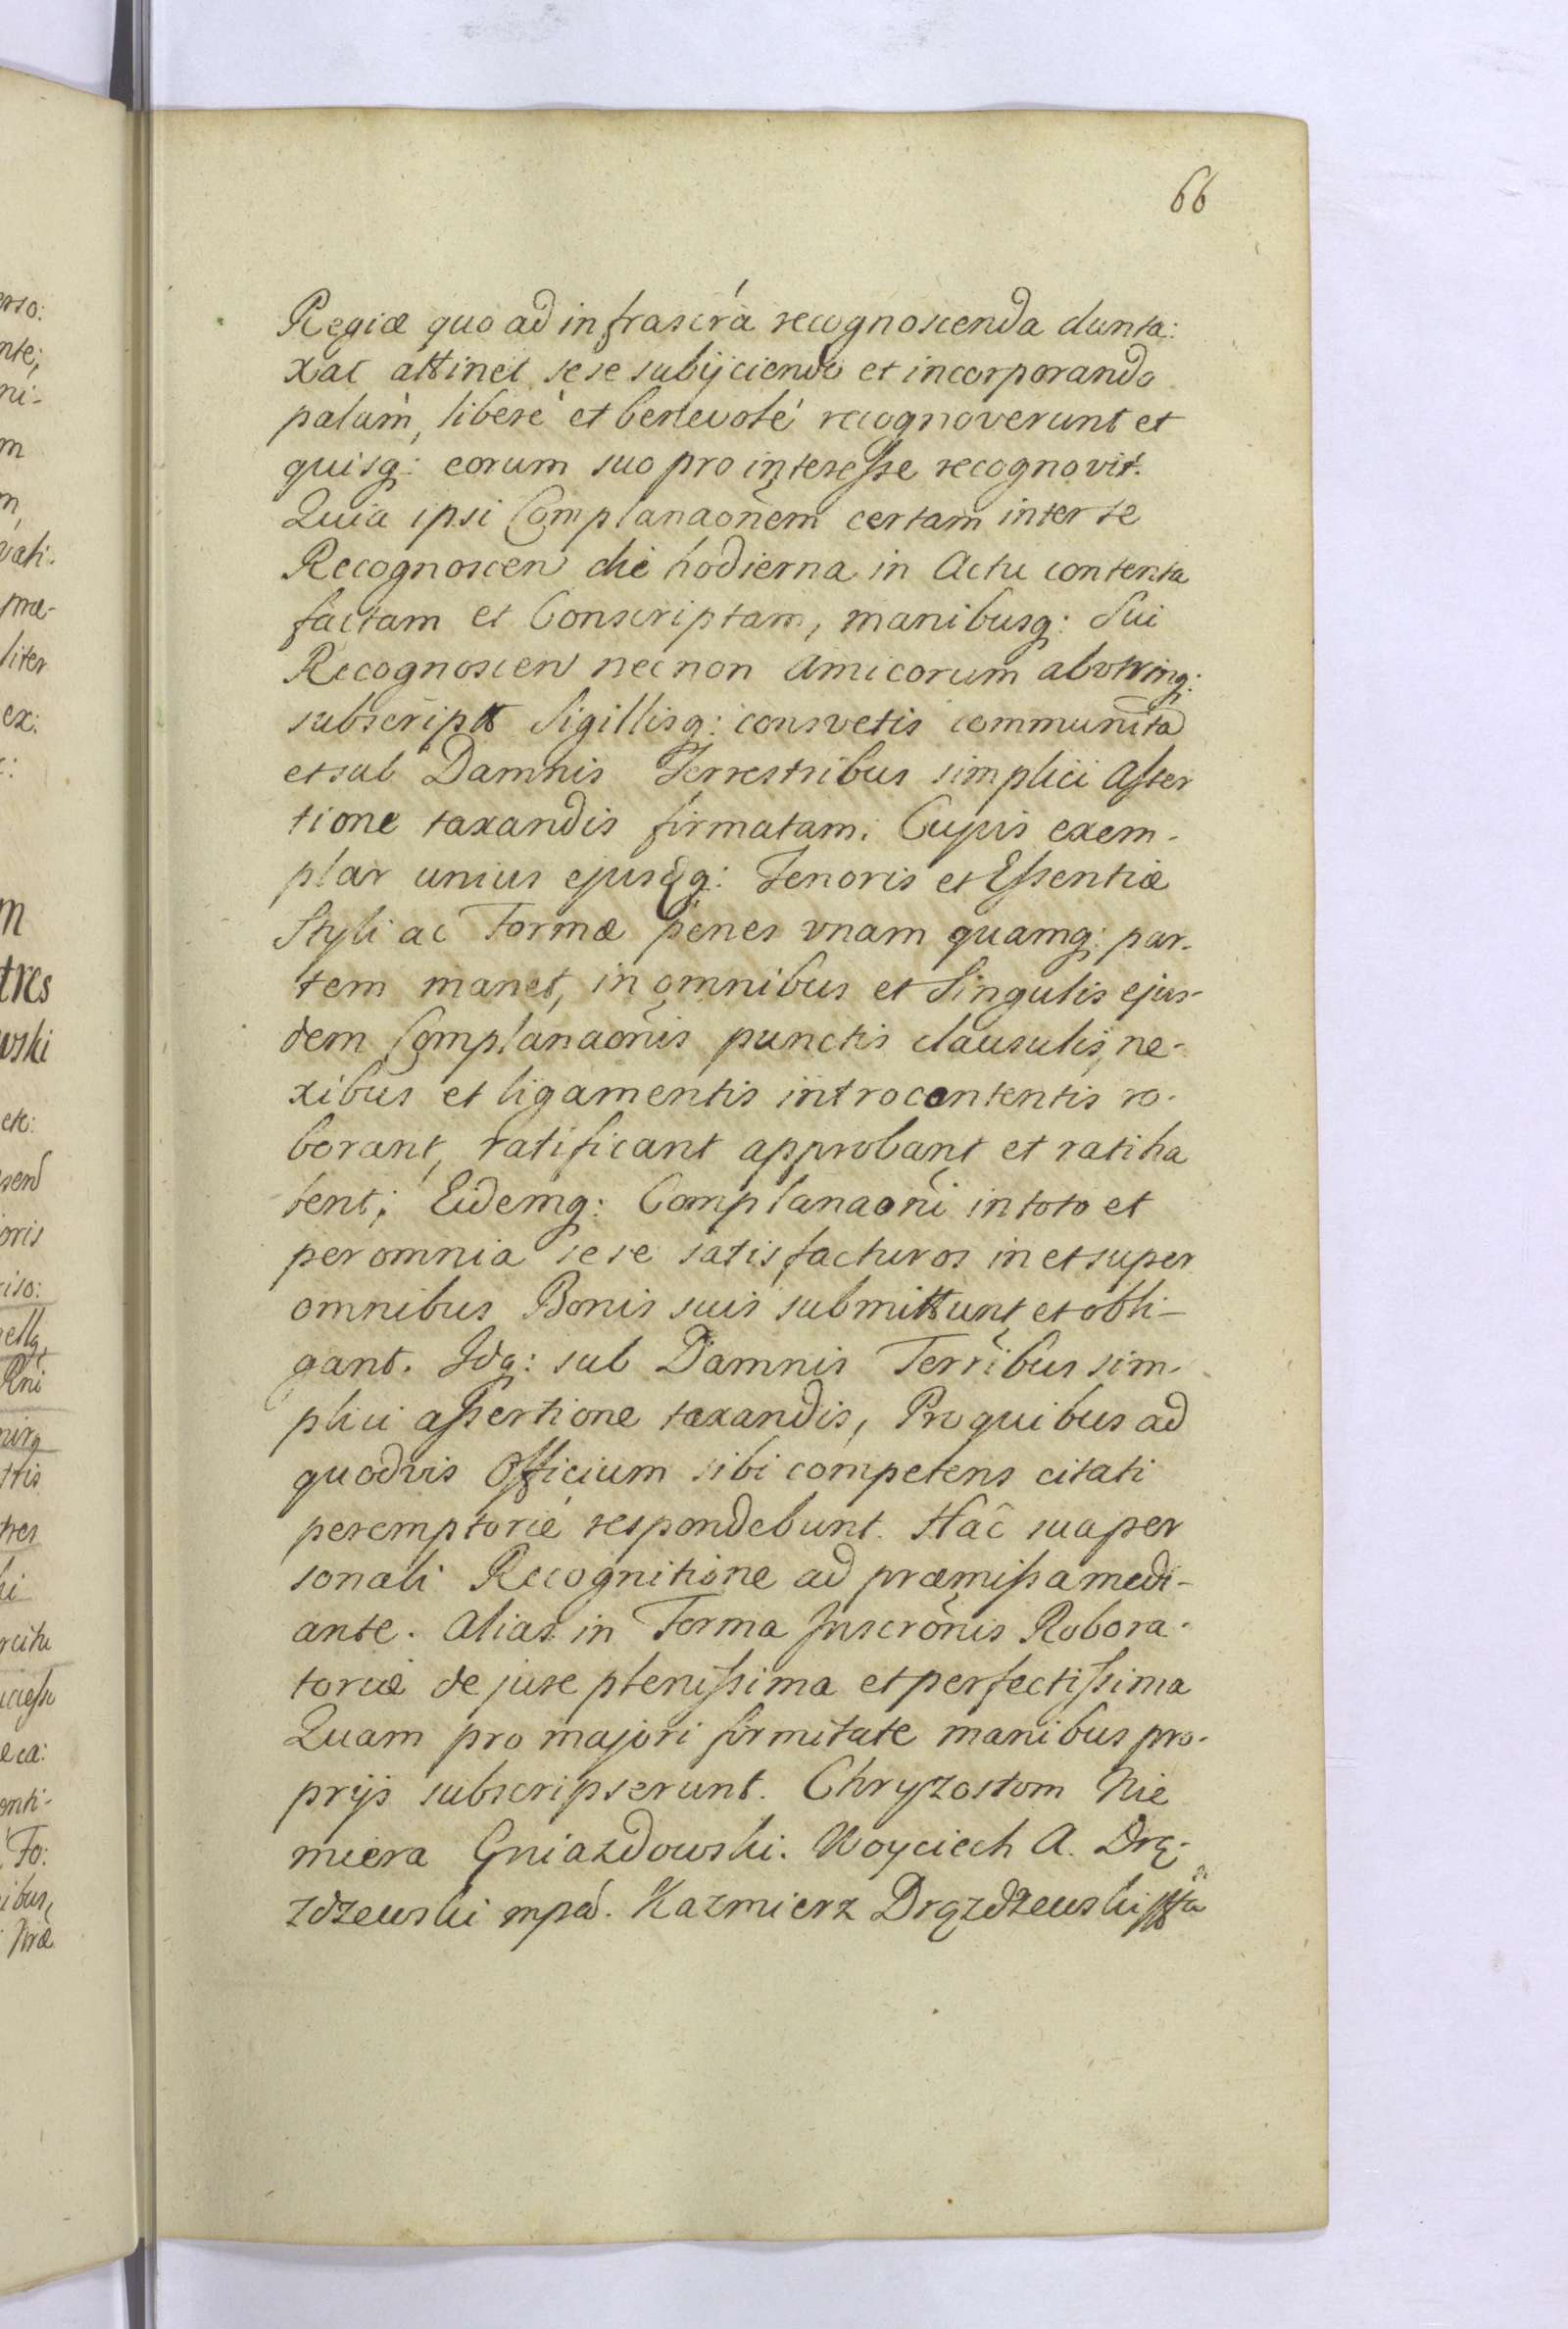 66
Regiæ quo ad infrascrá recognoscenda dunta:
xat attinet sese subijciendo et incorporando
palam̀, liberè et benevolé recognoverunt et
quisq: eorum suo pro interesse recognovit.
Quia ipsi Complanaoñem certam inter se
Recognoscen die hodierna in Actu contenta
factam et Conscriptam, manibusq: Sui
Recognoscen nec non Amicorum ab
subscript Sigillisq: consvetis communita
et sub Damnis Terrestribus simplici Asser
tione taxandis firmatam. Cujus exem-
plar unius ejusdq: Tenoris et Essentiæ
Styli ac Formæ penes unam quamq: par-
tem manet, in omnibus et Singulis ejus-
dem Complanaoñis punctis clausulis, ne-
xibus et ligamentis introcontentis ro-
borant, ratificant approbant et ratiha
bent; Eidemq: Complanaoñi in toto et
per omnia sese satisfacturos in et super
omnibus Bonis suis submittunt et obli-
gant. Idq: sub Damnis Terribus sim-
plici assertione taxandis, Pro quibus ad
quodvis Officium sibi competens citati
peremptorié respondebunt. Hac̑ sua per
sonali Recognitione ad præmissa medi-
ante. Alias in Forma Inscroñis Robora-
toriæ de jure plenissima et perfectissima
Quam pro majori firmitate manibus pro-
prijs subscripserunt. Chryzostom Nie
miera Gniazdowski. Woyciech A. Drą-
zdzewski mpá. Kazmierz Drązdzewski